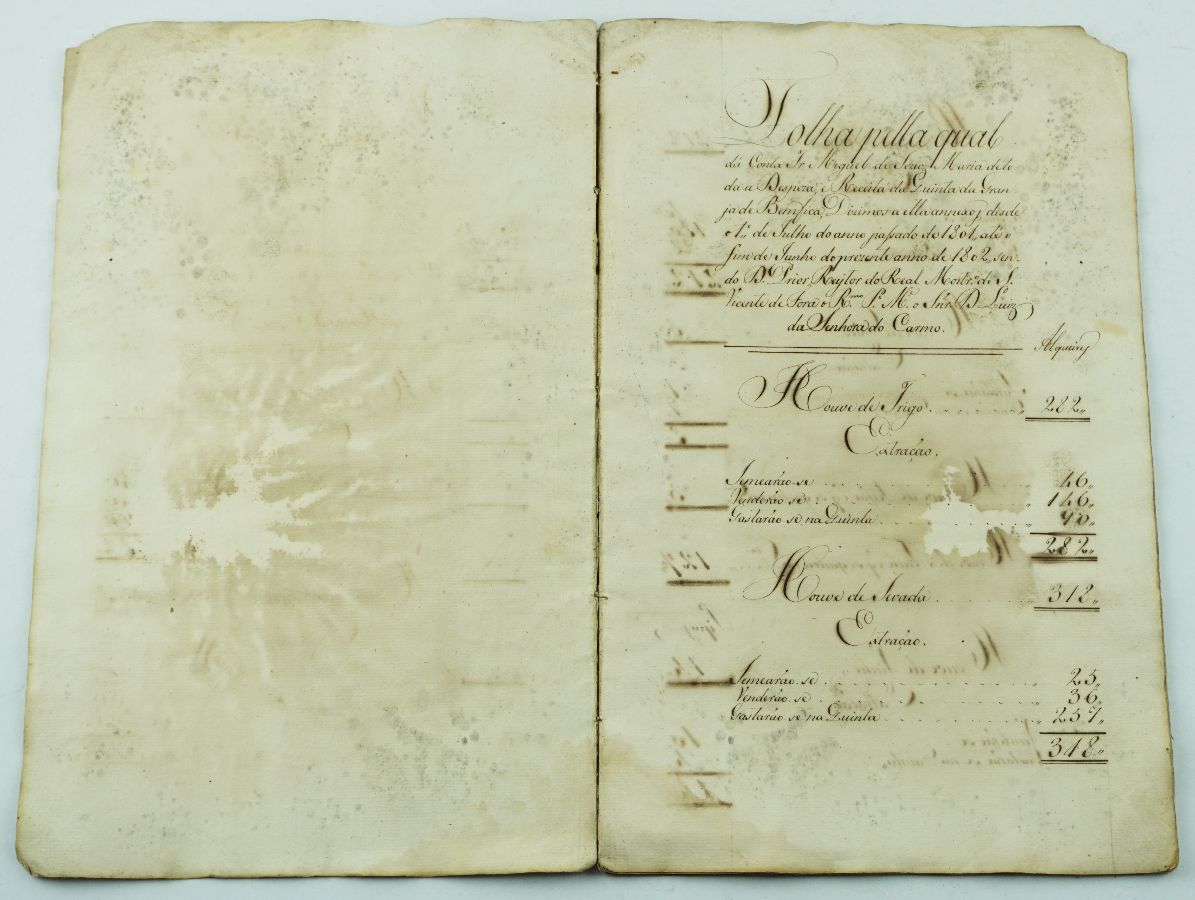 Folha pella qual
dá Conta Fr. Miguel de Maria de to-
da a Despeza, e Receita da Quinta da Gran-
ja de Bemfica, Dizimos a ella annexos, desde
o 1º de Julho do anno passado de 1801, até o
fim de Junho do prezente anno de 1802, sen-
do D. Prior, Reytor do Real Mostrº de S.
Vicente de Fora o Rmo P. M. o Snr. D. Luiz
da Senhora do Carmo.
Alqueires
Houve de Trigo 282
Extração.
Semearão-se 46
Venderão-se 146
Gastarão-se na Quinta 90
282
Houve de Sevada 312
Extração.
Semearão-se 25
Venderão-se 36
Gastarão-se na Quinta 257
348